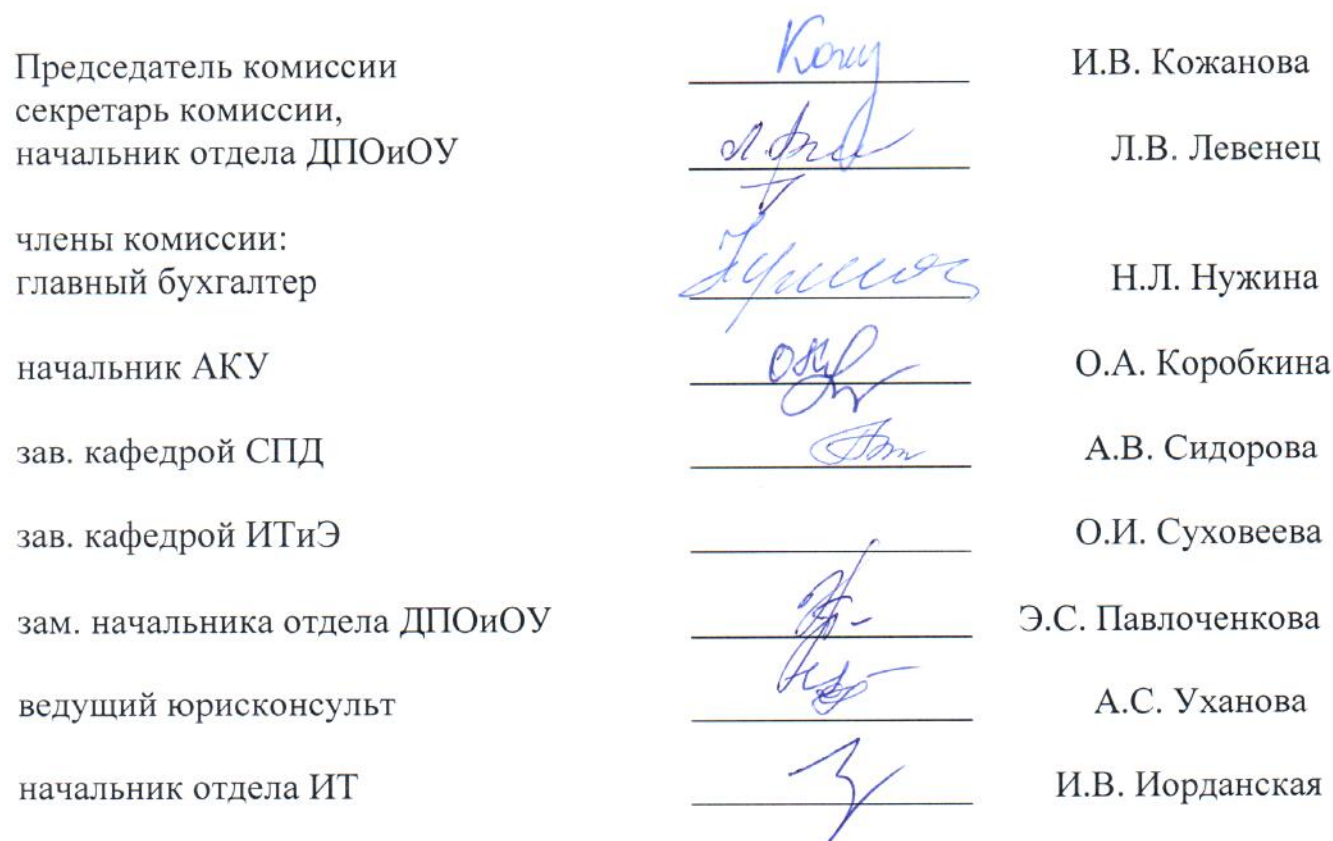 Председатель комиссии И.В. Кожанова
секретарь комиссии,
начальник отдела ДПОиОУ Л.В. Левенец
члены комиссии:
главный бухгалтер Н.Л. Нужина
начальник АКУ О.А. Коробкина
зав. кафедрой СПД А.В. Сидорова
зав. кафедрой ИТиЭ О.И. Суховеева
зам. начальника отдела ДПОиОУ Э.С. Павлоченкова
ведущий юрисконсульт А.С. Уханова
начальник отдела ИТ И.В. Иорданская